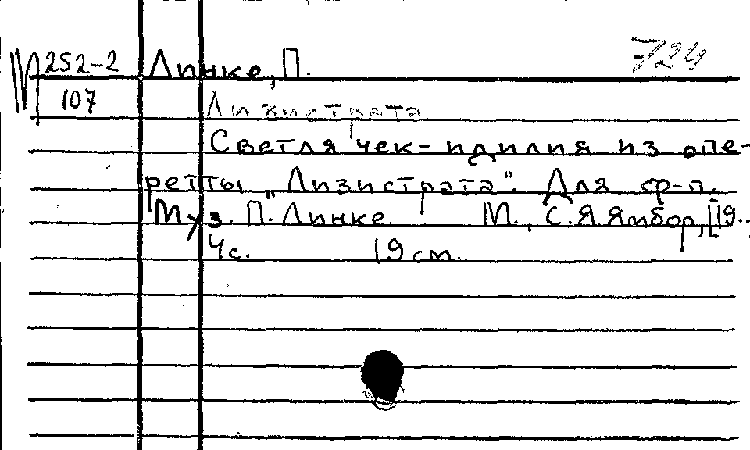 М 252-2 Линке, П. 724
107 Лизистрата
Светлячек-идилия из опе-
ретты "Лизистрата". Для ф-п.
Муз. П. Линке М., С.Я.Ямбор, [19..
4с. 19 см.